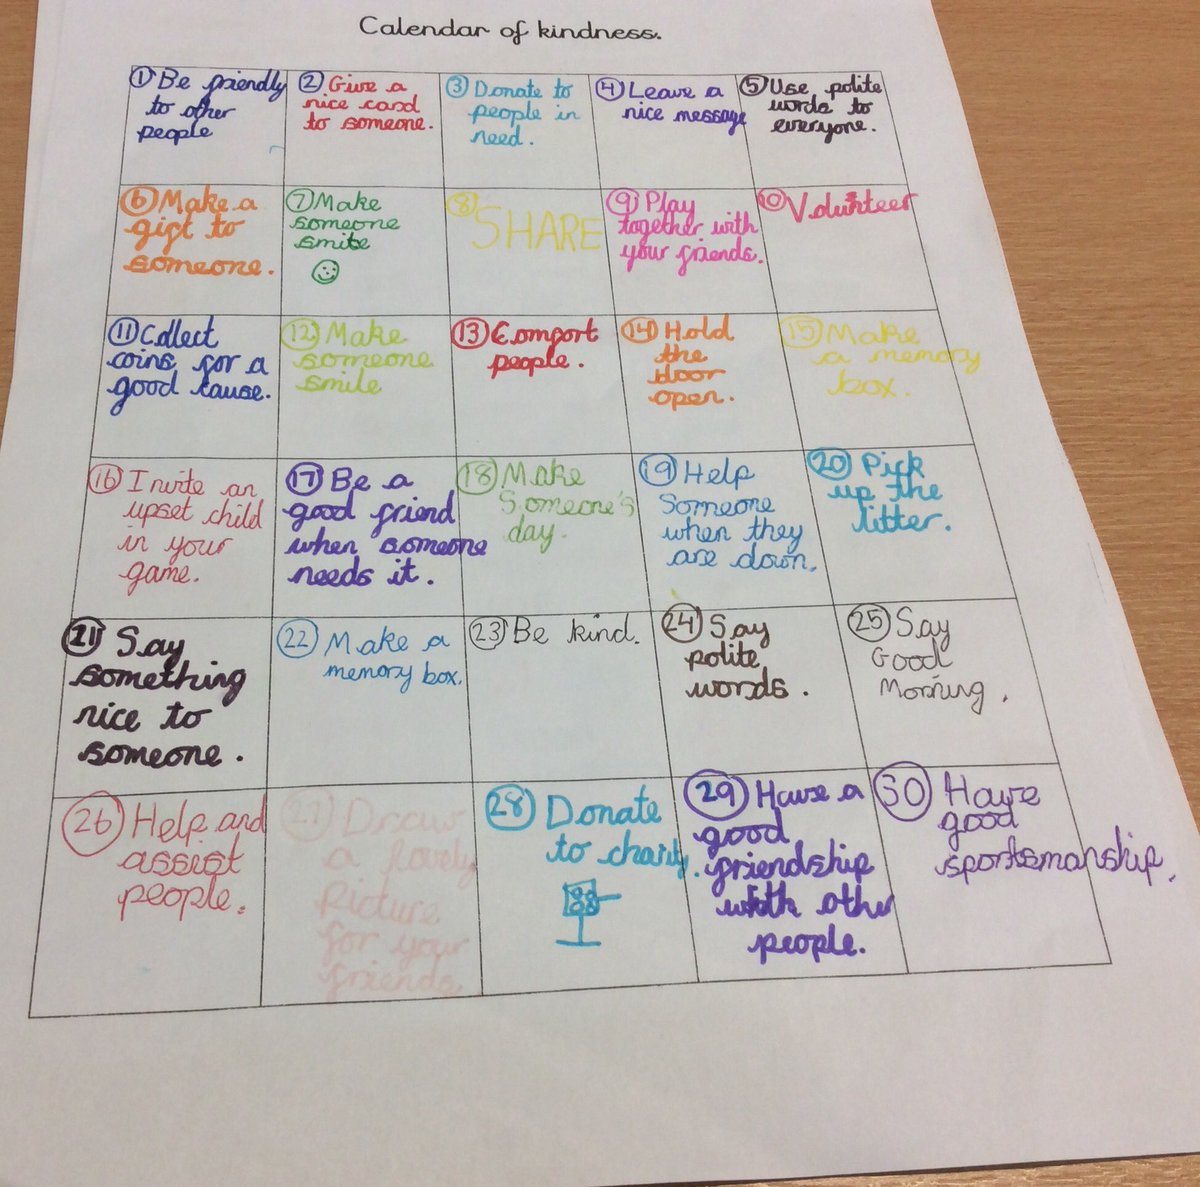 Calendar of kindness.
① Be friendly
to other
people
② Give a
nice card
to someone.
③ Donate to
people in
need.
④ Leave a
nice message
⑤ Use polite
words to
everyone.
⑥ Make a
gift to
someone.
⑦ Make
someone
smile
⑧ SHARE
⑨ Play
together with
your friends.
⑩ Volunteer
⑪ Collect
coins for a
good cause.
⑫ Make
someone
smile
⑬ Comfort
people.
⑭ Hold
the
door
open.
⑮ Make
a memory
box.
⑯ Invite an
upset child
in your
game.
⑰ Be a
good friend
when someone
needs it.
⑱ Make
Someone's
day.
⑲ Help
Someone
when they
are down.
⑳ Pick
up the
litter.
㉑ Say
something
nice to
someone.
㉒ Make a
memory box.
㉓ Be kind.
㉔ Say
polite
words.
㉕ Say
Good
Morning.
㉖ Help and
assist
people.
㉗ Draw
a lovely
Picture
for your
friends
㉘ Donate
to charity.
㉙ Have a
good
friendship
with other
people.
㉚ Have
good
sportsmanship.